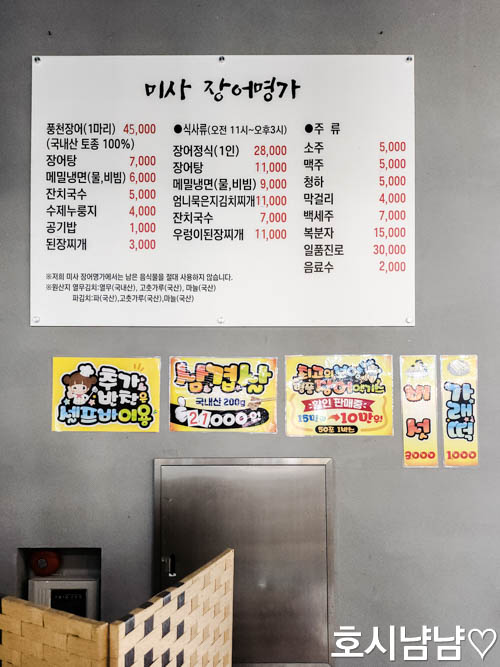 미사 장어명가
풍천장어(1마리) 45,000
(국내산 토종 100%)
장어탕 7,000
메밀냉면(물,비빔) 6,000
잔치국수 5,000
수제누룽지 4,000
공기밥 1,000
된장찌개 3,000
●식사류(오전 11시~오후3시)
장어정식(1인) 28,000
장어탕 11,000
메밀냉면(물,비빔) 9,000
엄니묵은지김치찌개 11,000
잔치국수 7,000
우렁이된장찌개 11,000
●주 류
소주 5,000
맥주 5,000
청하 5,000
막걸리 4,000
백세주 7,000
복분자 15,000
일품진로 30,000
음료수 2,000
※저희 미사 장어명가에서는 남은 음식물을 절대 사용하지 않습니다.
※원산지 열무김치:열무(국내산), 고춧가루(국산), 마늘(국산)
파김치:파(국산),고춧가루(국산),마늘(국산)
추가
반찬은
셀프바 이용
국내산 200g
21,000원
최고의 보양
장어
할인 판매중
15만원→10만원
50포 1박스
버섯
3000
가래떡
1000
호시냠냠♡